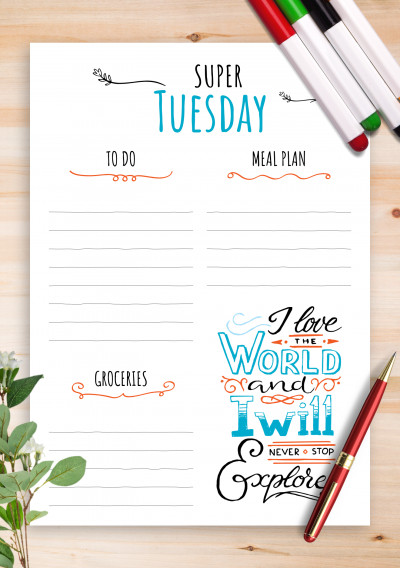 SUPER
TUESDAY
TO DO
MEAL PLAN
GROCERIES
I love
THE
WORLD
and
I will
NEVER STOP
Explore